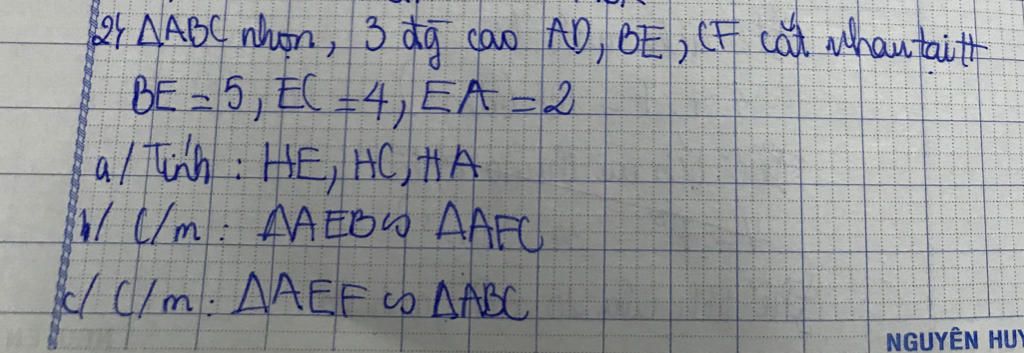 2/ ΔABC nhọn, 3 đg cao AD, BE, CF cắt nhau tại H
BE = 5, EC = 4, EA = 2
a/ Tính : HE, HC, HA
b/ C/m : ΔAEB ∽ ΔAFC
c/ C/m : ΔAEF ∽ ΔABC
NGUYÊN HUY